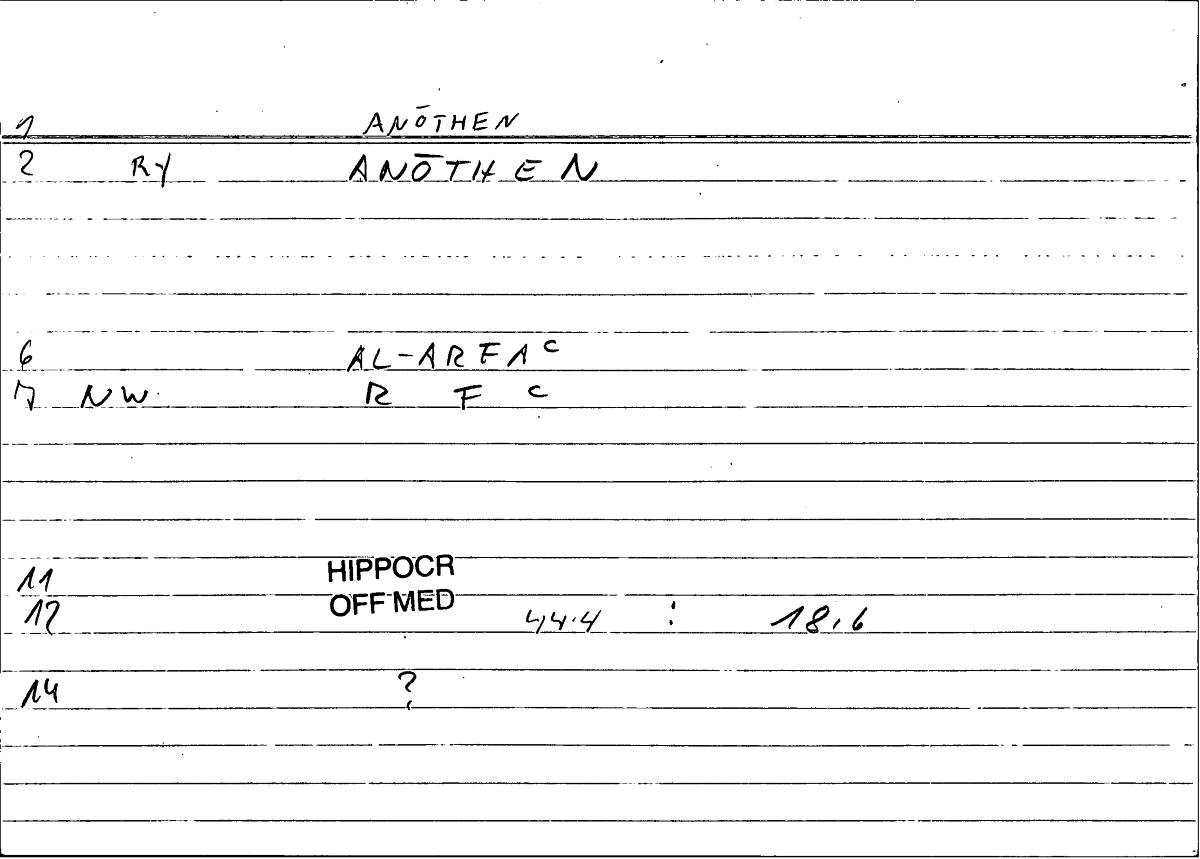 1 ANŌTHEN
2 RY ANŌTHEN
6 AL-ARFAᶜ
7 NW R F ᶜ
11 HIPPOCR
12 OFF MED 44.4 : 18,6
14 ?